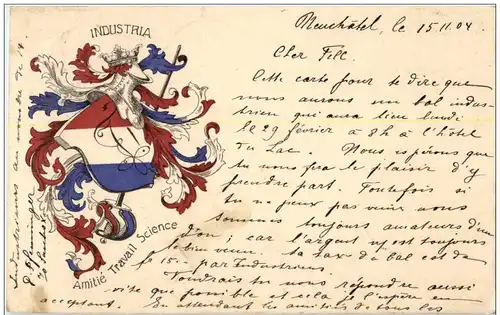 INDUSTRIA
Amitié Travail Science
Neuchâtel, le 15 II. 04
Cher Fell.
Cette carte pour te dire que
nous aurons un bal indus-
trien qui aura lieu lundi
le 29 février à 8h à l'hôtel
du Lac. Nous espérons que
tu nous fera le plaisir d'y
prendre part. Toutefois si
tu ne peux pas venir nous
sommes toujours amateurs d'un
don, car l'argent y est toujours
le bien venu. La taxe de bal est de
15.- par Industrien.
Voudrais-tu nous répondre aussi
vite que possible et cela je l'espère en
acceptant. En attendant les amitiés de tous les
Industriens au nombre de 14